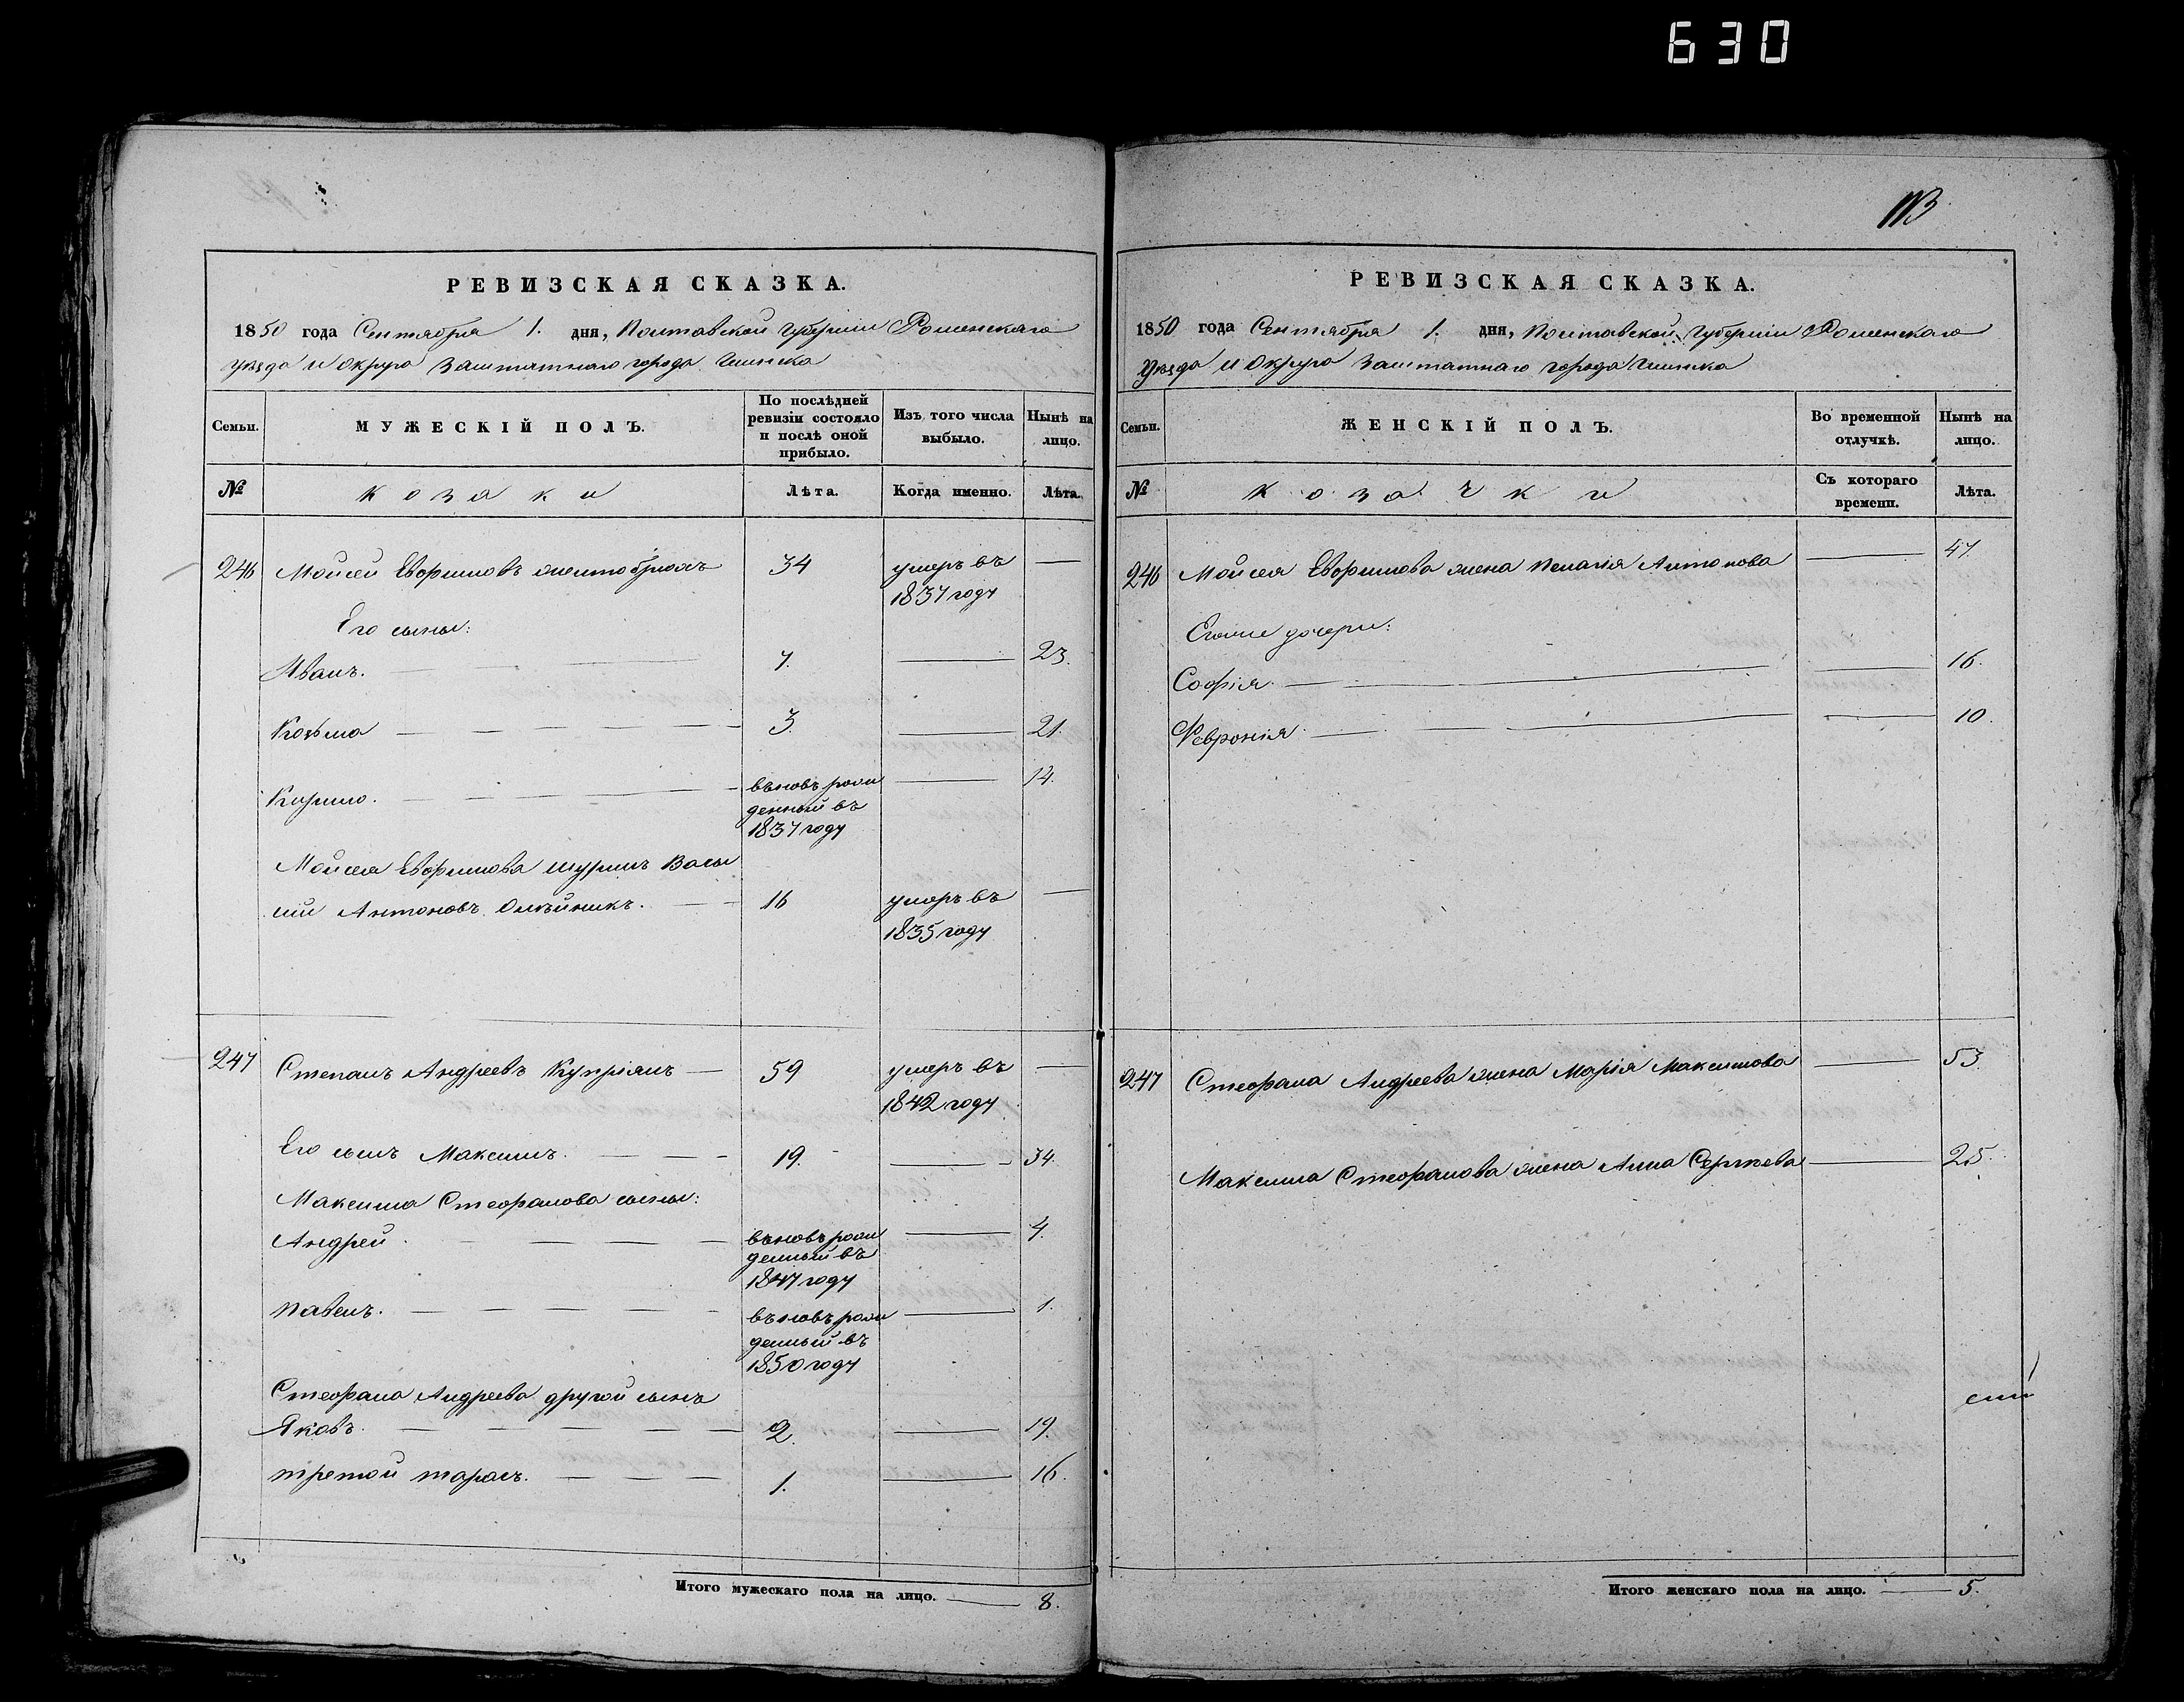 630
113
РЕВИЗСКАЯ СКАЗКА.
1850 года Сентября 1. дня, Полтавской Губернии Роменскаго
уезда и округа заштатнаго города Глинска
Семьи.
МУЖЕСКІЙ ПОЛЪ.
По послѣдней ревизіи состояло и послѣ оной прибыло.
Изъ того числа выбыло.
Нынѣ на лицо.
№
козаки
Лѣта.
Когда именно.
Лѣта.
246 Мойсей Евфимовъ Жентобрюхъ 34 умеръ въ 1837 году —
Его сыны:
Иванъ. — 7. — 23.
Козьма — 3. — 21.
Кирило. — вьновь рожденный въ 1837 году — 14.
Мойсея Евфимова шуринъ Васи
лій Антоновъ Олѣйникъ. — 16 умеръ въ 1835 году —
247 Степанъ Андреевъ Купріянъ — 59 умеръ въ 1842 году —
Его сынъ Максимъ. — 19. — 34.
Максима Стефанова сыны:
Андрей. — вьновь рожденный въ 1847 году — 4.
Павелъ. — вьновь рожденный въ 1850 году — 1.
Стефана Андреева другой сынъ
Яковъ. — 2. — 19.
третой Тарасъ. — 1. — 16.
Итого мужескаго пола на лицо. — 8.
РЕВИЗСКАЯ СКАЗКА.
1850 года Сентября 1. дня, Полтавской Губерніи Роменскаго
Уезда и Округа Заштатнаго города Глинска
Семьи.
ЖЕНСКІЙ ПОЛЪ.
Во временной отлучкѣ.
Нынѣ на лицо.
№
козачки
Съ котораго времени.
Лѣта.
246 Мойсея Евфимова жена Пелагія Антонова — 47.
Егоже дочери:
София — 16.
Февронія — 10.
247 Стефана Андреева жена Марія Максимова — 53.
Максима Стефанова жена Анна Сергѣева — 25.
Итого женскаго пола на лицо. — 5.